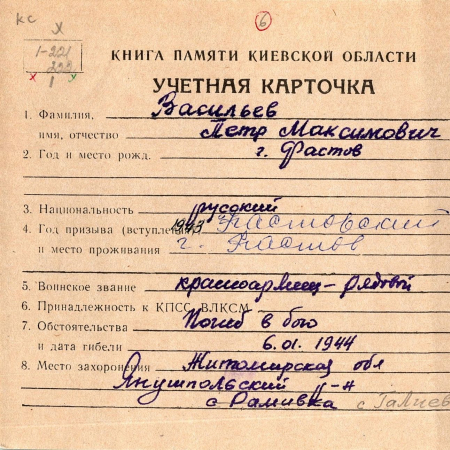 КС
6
X
1-221
223
1
КНИГА ПАМЯТИ КИЕВСКОЙ ОБЛАСТИ
УЧЕТНАЯ КАРТОЧКА
1. Фамилия, Васильев
имя, отчество Петр Максимович
2. Год и место рожд. г. Фастов
3. Национальность русский
4. Год призыва (вступления) 1943 Фастовский
и место проживания г. Фастов
5. Воинское звание красноармиец - рядовой
6. Принадлежность к КПСС, ВЛКСМ
7. Обстоятельства Погиб в бою
и дата гибели 6.01.1944
8. Место захоронения Житомирская обл
Янушпольский р-н
с Рамивка с Галиев